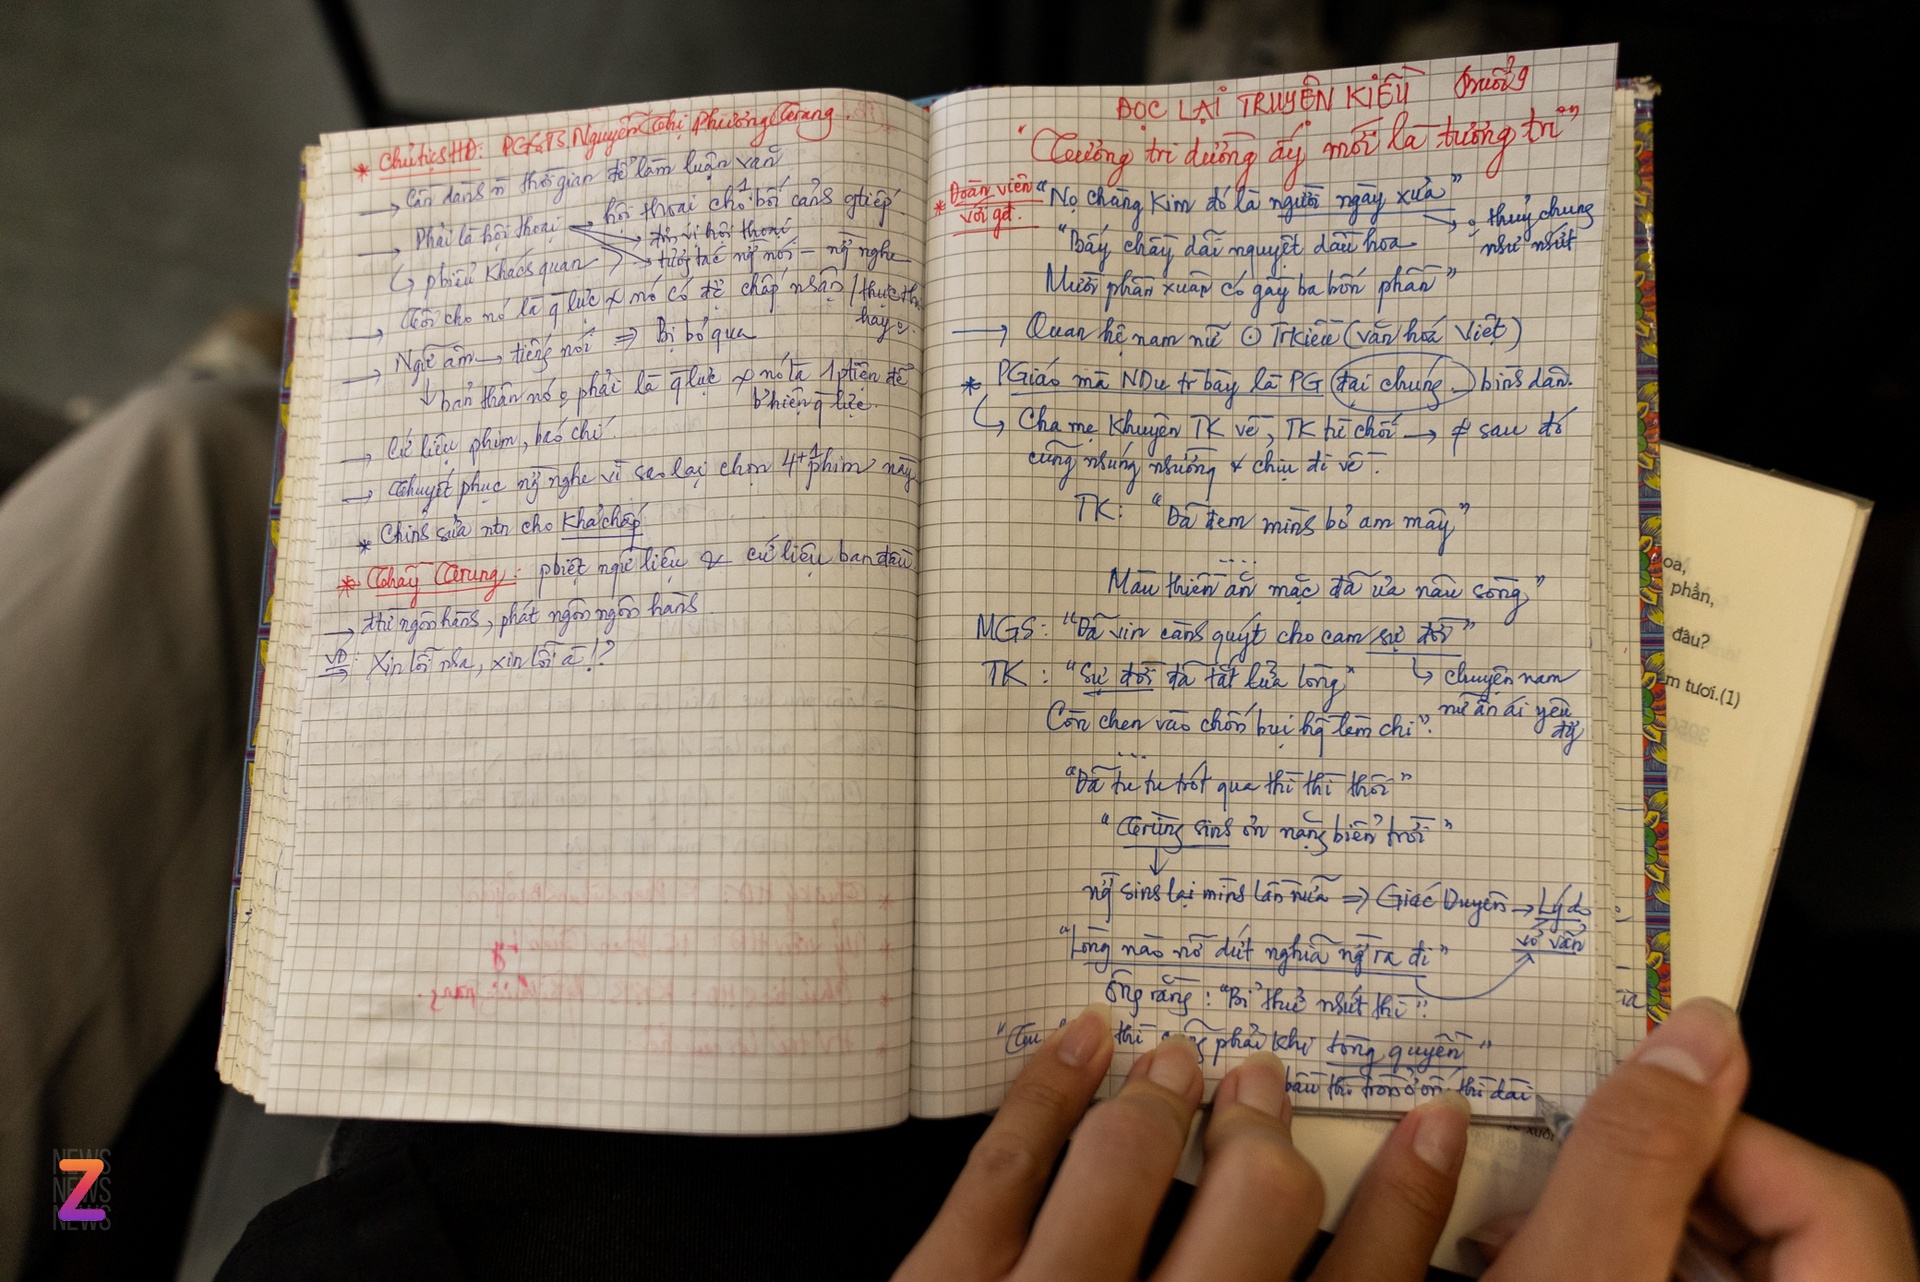 * Chủ tịch HĐ: PGS.TS Nguyễn Thị Phương Trang.
→ Cần dành n thời gian để làm luận văn
→ Phải là hội thoại → hội thoại cho 1 bối cảnh gtiếp.
→ đơn vị hội thoại
→ tương tác ng nói – ng nghe
↳ phiếu khách quan
→ Tôi cho nó là q lực x nó có để chấp nhận / thực thi
hay o.
→ Ngữ âm → tiếng nói ⇒ Bị bỏ qua
↓ bản thân nó o phải là q lực x nó là 1 ptiện để
b hiện q lực.
→ Cứ liệu phim, báo chí.
→ Thuyết phục ng nghe vì sao lại chọn 4+1 phim này
* Chỉnh sửa ntn cho khả chấp
* Thầy Trung: pbiệt ngữ liệu & cứ liệu ban đầu
→ ngôn hành, phát ngôn ngôn hành
VD: Xin lỗi nha, xin lỗi à!?
ĐỌC LẠI TRUYỆN KIỀU Buổi 9
"Tương tri dường ấy mới là tương tri"
* Đoàn viên
với gđ.
"Nọ chàng Kim đó là người ngày xưa"
→ o thuỷ chung
như nhứt
"Bấy chầy dãi nguyệt dầu hoa
Mười phần xuân có gầy ba bốn phần"
→ Quan hệ nam nữ ⊙ TrKiều (văn hoá Việt)
* PGiáo mà NDu tr bày là PG đại chúng, bình dân.
↳ Cha mẹ khuyên TK về, TK từ chối → # sau đó
cũng nhúng nhường & chịu đi về.
TK: "Đã đem mình bỏ am mây"
....
Màu thiền ăn mặc đã ưa nâu sồng"
MGS: "Đã vin cành quýt cho cam sự đời"
TK: "Sự đời đã tắt lửa lòng"
↳ chuyện nam
nữ ân ái yêu
đg
Còn chen vào chốn bụi hg làm chi".
...
"Đã tu tu trót qua thì thì thôi"
"Trùng sinh ơn nặng biển trời"
↓
ng sinh lại mình lần nữa ⇒ Giác Duyên → Lý do
vớ vẩn
"Lòng nào nỡ dứt nghĩa ng ra đi"
Ông rằng: "Bỉ thử nhứt thì".
thì phải khi tòng quyền"
oa,
phân,
đâu?
m tươi.(1)
NEWS
Z
NEWS
NEWS